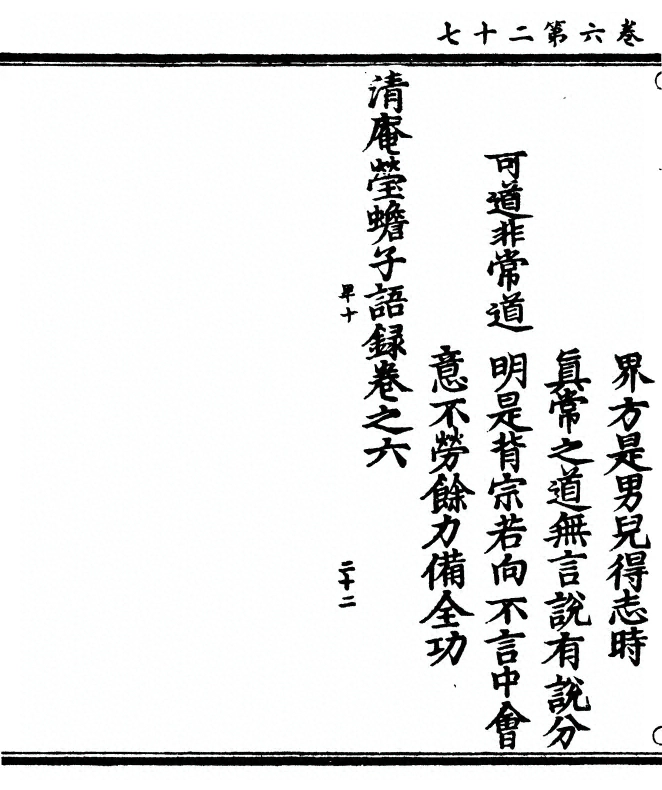 卷六第二十七
界方是男兒得志時
真常之道無言說有說分
可道非常道 明是背宗若向不言中會
意不勞餘力備全功
清庵瑩蟾子語録卷之六
早十 二十二